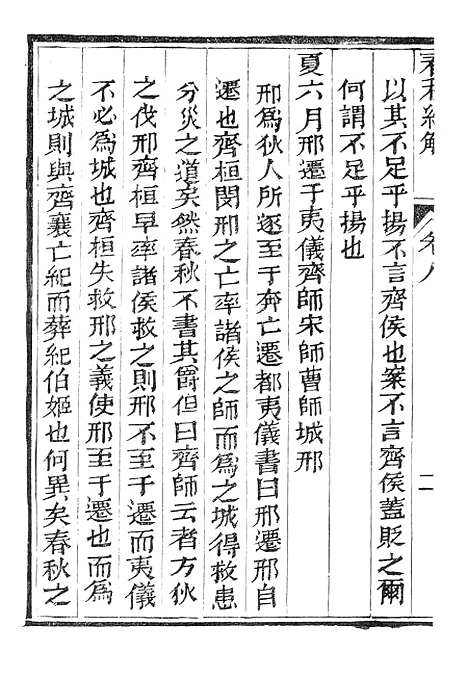 春秋經解 卷八 二
以其不足乎揚不言齊侯也案不言齊侯蓋貶之爾
何謂不足乎揚也
夏六月邢遷于夷儀齊師宋師曹師城邢
邢為狄人所逐至于奔亡遷都夷儀書曰邢遷邢自
遷也齊桓閔邢之亡率諸侯之師而為之城得救患
分災之道矣然春秋不書其爵但曰齊師云者方狄
之伐邢齊桓早率諸侯救之則邢不至于遷而夷儀
不必為城也齊桓失救邢之義使邢至于遷也而為
之城則與齊襄亡紀而葬紀伯姬也何異矣春秋之